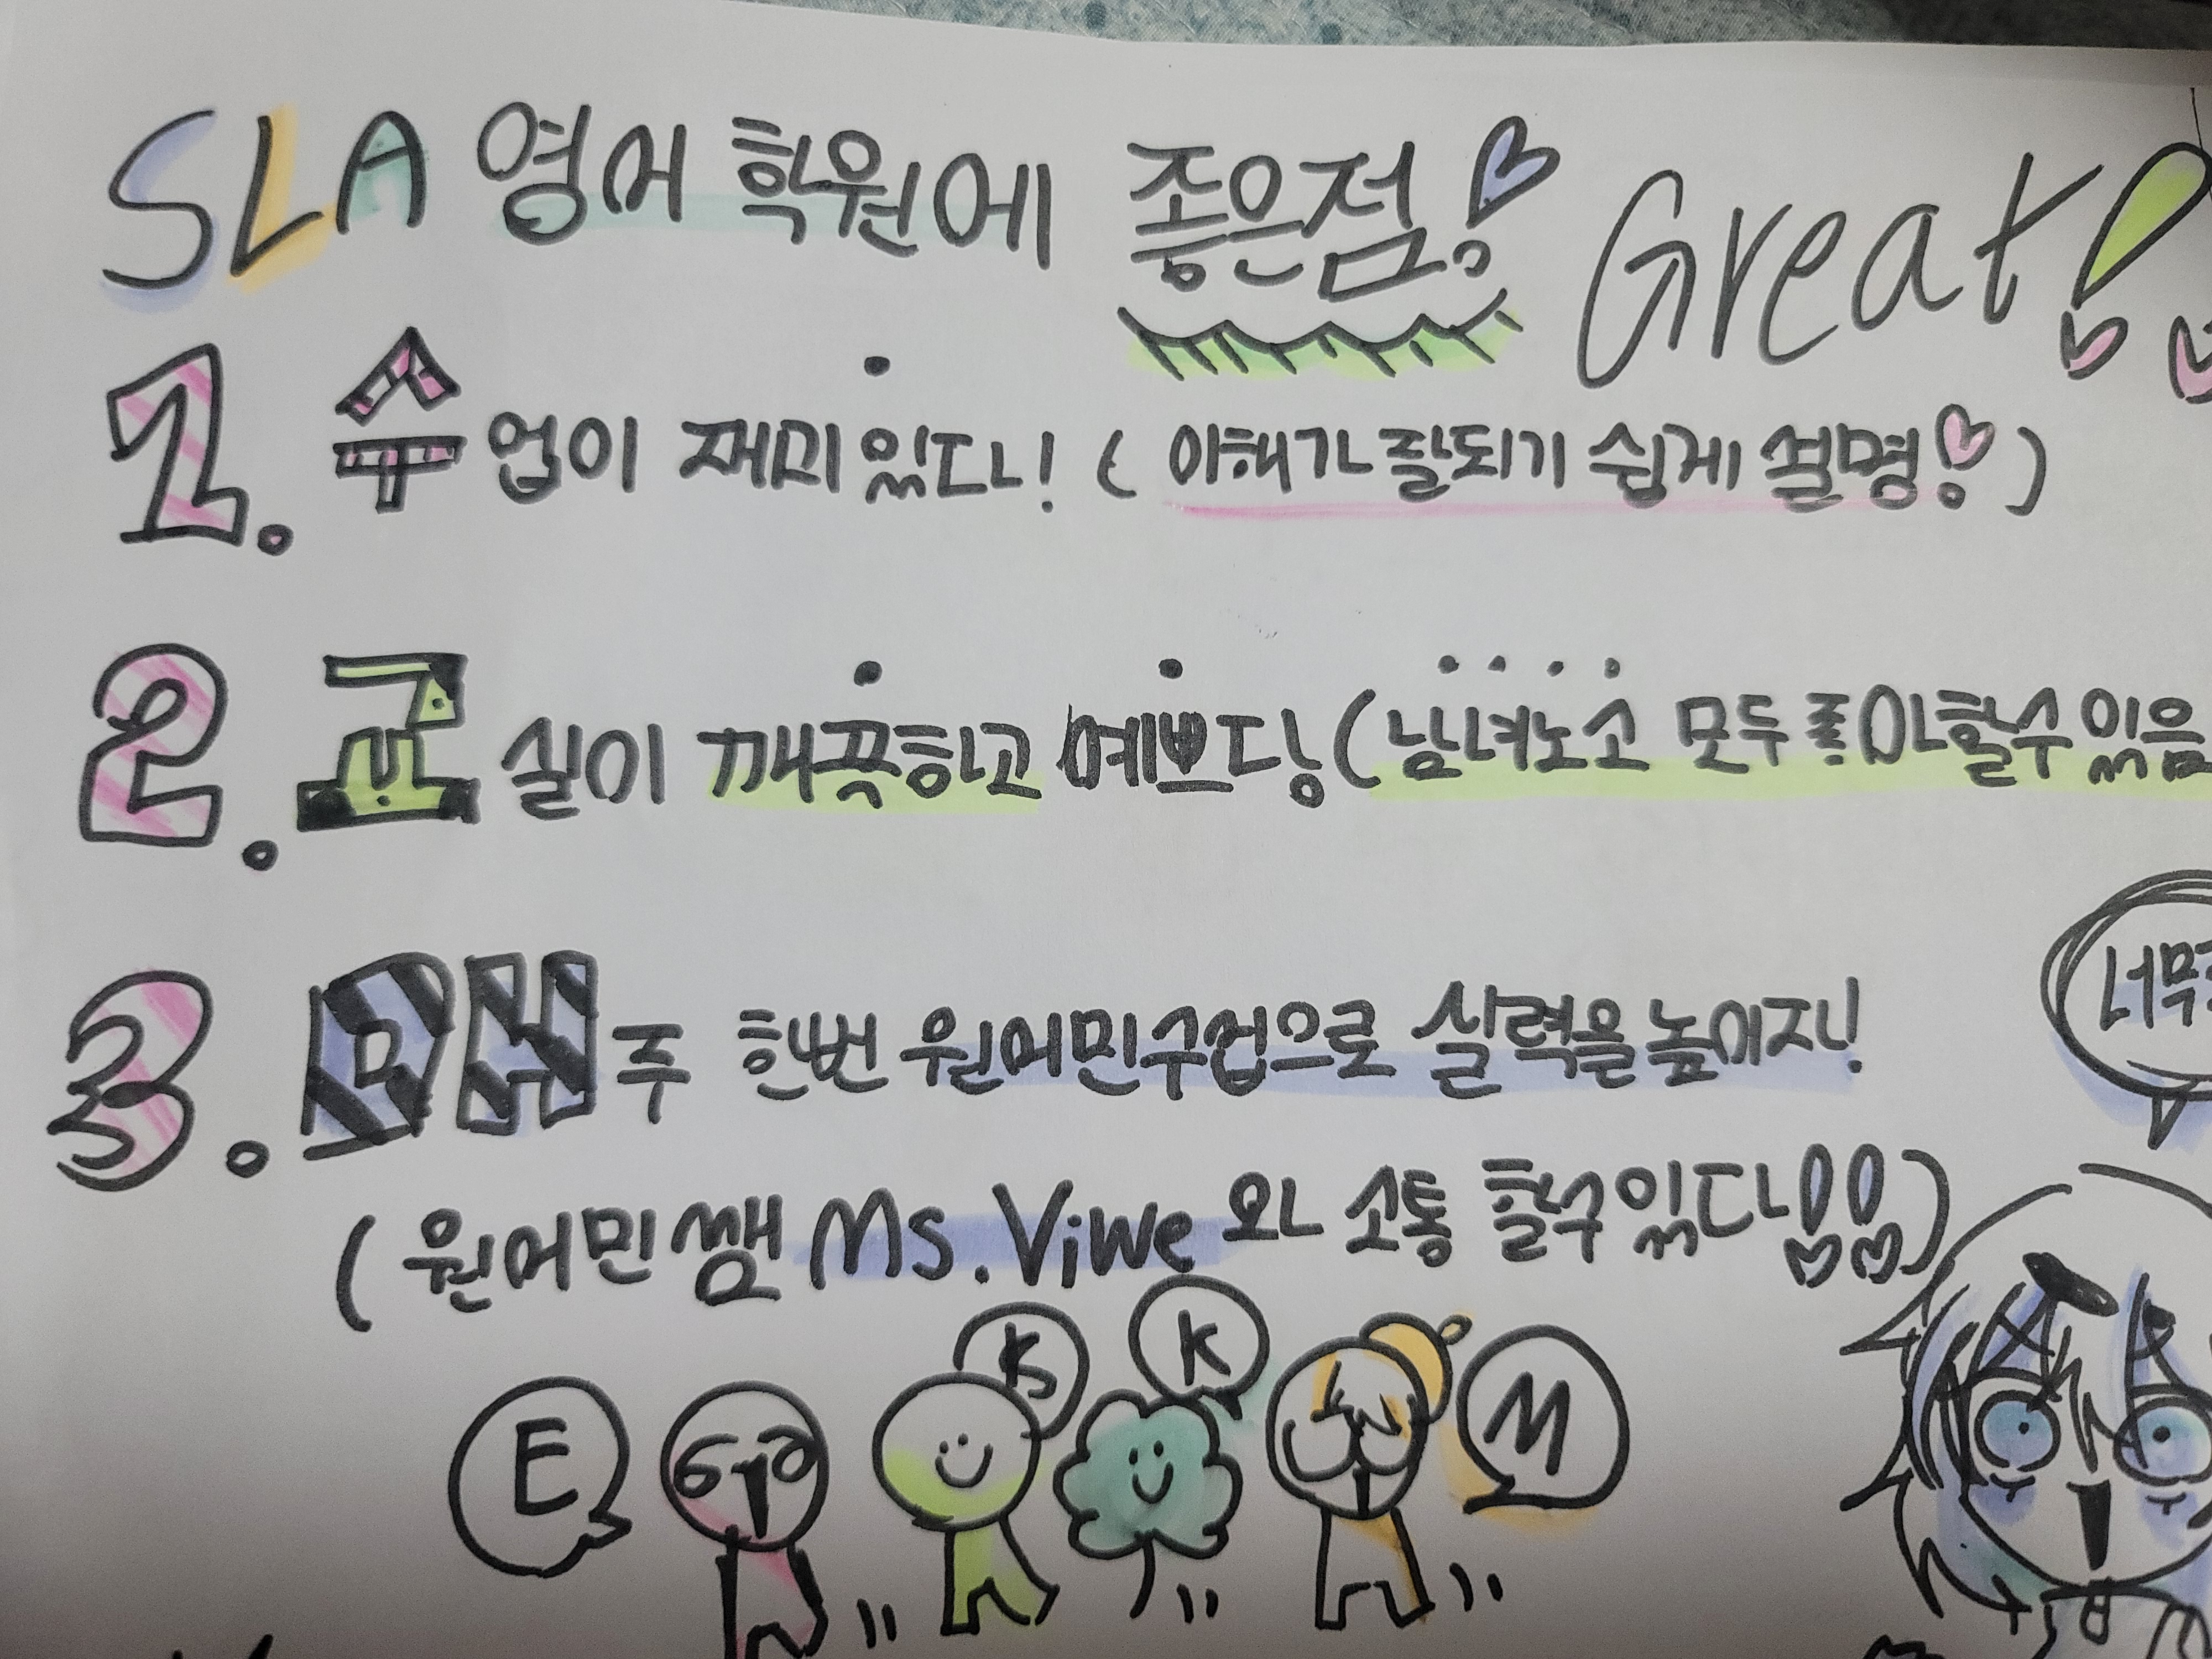 SLA 영어 학원에 좋은점! Great!
1. 수업이 재미있다! (이해가 잘되기 쉽게 설명!)
2. 교실이 깨끗하고 예쁘당 (남녀노소 모두 좋아할수 있음
3. 매주 한번 원어민수업으로 실력을높이자!
너무
(원어민쌤 Ms.Viwe와 소통 할수있다!!)
E K K M